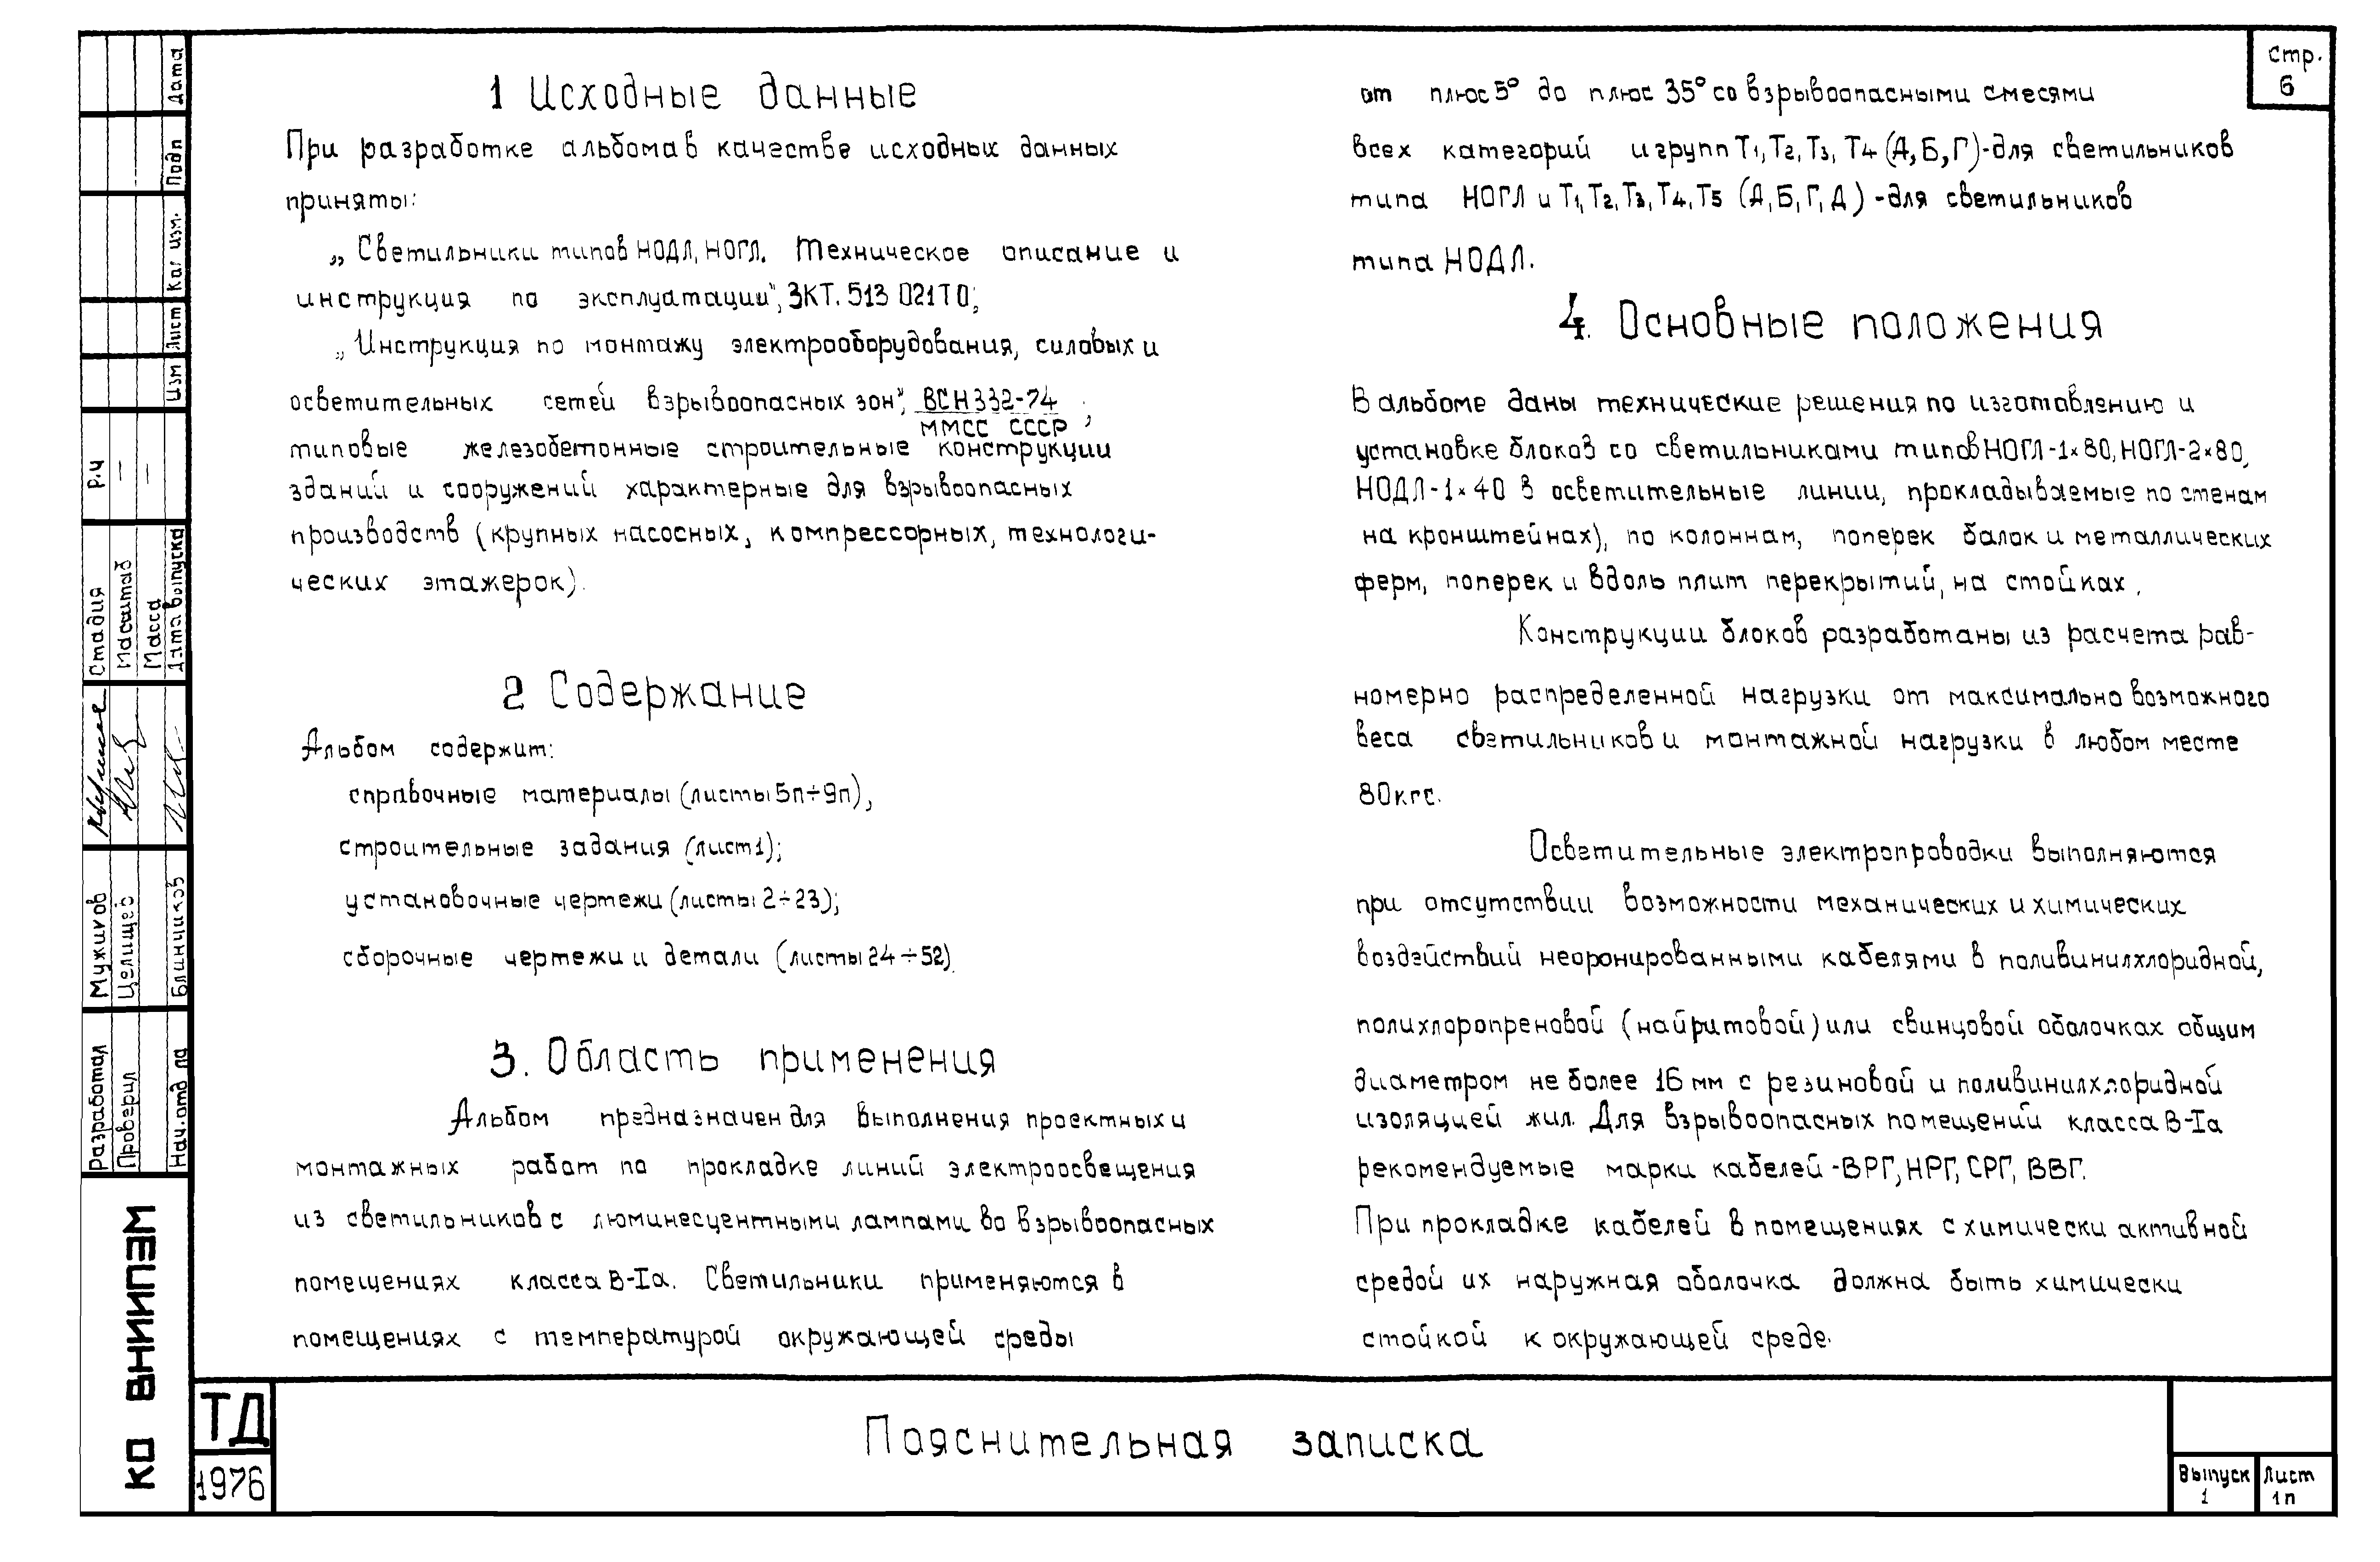 Стр.
6
1 Исходные данные
При разработке альбома в качестве исходных данных
приняты:
„Светильники типов НОДЛ, НОГЛ. Техническое описание и
инструкция по эксплуатации", 3КТ. 513 021ТО;
„Инструкция по монтажу электрооборудования, силовых и
осветительных сетей взрывоопасных зон", ВСН 332-74
ММСС СССР;
типовые железобетонные строительные конструкции
зданий и сооружений характерные для взрывоопасных
производств (крупных насосных, компрессорных, технологи-
ческих этажерок).
2 Содержание
Альбом содержит:
справочные материалы (листы 5п÷9п),
строительные задания (лист 1);
установочные чертежи (листы 2÷23);
сборочные чертежи и детали (листы 24÷52).
3. Область применения
Альбом предназначен для выполнения проектных и
монтажных работ по прокладке линий электроосвещения
из светильников с люминесцентными лампами во взрывоопасных
помещениях класса В-Iа. Светильники применяются в
помещениях с температурой окружающей среды
от плюс 5° до плюс 35° со взрывоопасными смесями
всех категорий и групп Т1, Т2, Т3, Т4 (А, Б, Г)-для светильников
типа НОГЛ и Т1, Т2, Т3, Т4, Т5 (А, Б, Г, Д) -для светильников
типа НОДЛ.
4. Основные положения
В альбоме даны технические решения по изготовлению и
установке блоков со светильниками типов НОГЛ-1×80, НОГЛ-2×80,
НОДЛ-1×40 в осветительные линии, прокладываемые по стенам
на кронштейнах), по колоннам, поперек балок и металлических
ферм, поперек и вдоль плит перекрытий, на стойках.
Конструкции блоков разработаны из расчета рав-
номерно распределенной нагрузки от максимально возможного
веса светильников и монтажной нагрузки в любом месте
80кгс.
Осветительные электропроводки выполняются
при отсутствии возможности механических и химических
воздействий неоронированными кабелями в поливинилхлоридной,
полихлоропреновой (найритовой) или свинцовой оболочках общим
диаметром не более 16 мм с резиновой и поливинилхлоридной
изоляцией жил. Для взрывоопасных помещений класса В-Iа
рекомендуемые марки кабелей -ВРГ, НРГ, СРГ, ВВГ.
При прокладке кабелей в помещениях с химически активной
средой их наружная оболочка должна быть химически
стойкой к окружающей среде.
Дата
Подп
Изм.
Лист
Изм
Р.Ч
–
–
Стадия
Масштаб
Масса
Дата выпуска
Мужиков
Целищев
Блинчиков
Разработал
Проверил
Нач. отд
КО ВНИИПЭМ
ТД
1976
Пояснительная записка
Выпуск
1
Лист
1п